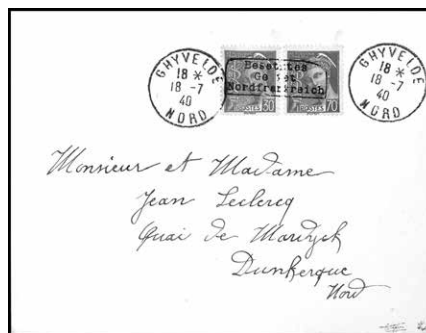 GHYVELDE
18 *
18 -7
40
NORD
Besetztes
Gebiet
Nordfrankreich
POSTES 30
POSTES 70
GHYVELDE
18 *
18 -7
40
NORD
Monsieur et Madame
Jean Leclercq
Quai de Mardyck
Dunkerque
Nord